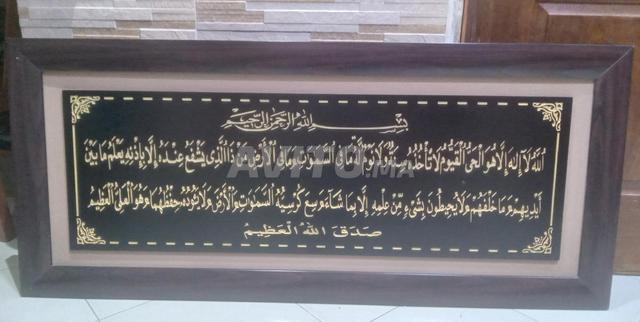 بسم الله الرحمن الرحيم
الله لا إله إلا هو الحي القيوم لا تأخذه سنة ولا نوم له ما في السموات وما في الأرض من ذا الذي يشفع عنده إلا بإذنه يعلم ما بين
أيديهم وما خلفهم ولا يحيطون بشيء من علمه إلا بما شاء وسع كرسيه السموات والأرض ولا يئوده حفظهما وهو العلي العظيم
صدق الله العظيم
AVITO.MA